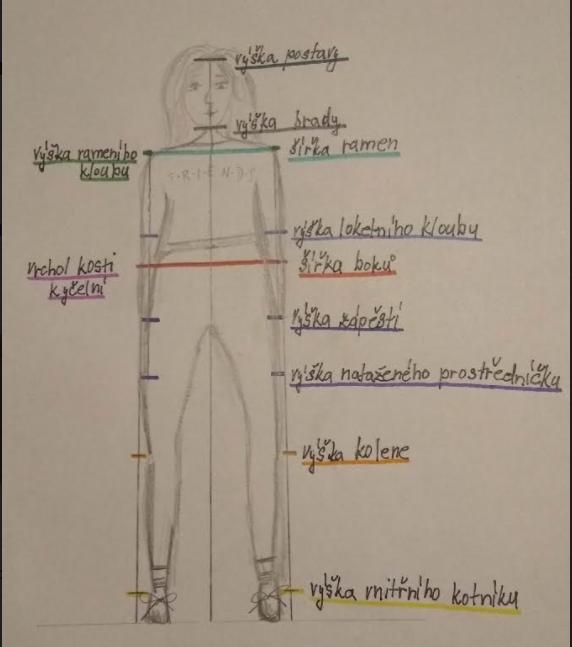 výška postavy
výška brady
výška rameního
kloubu
šířka ramen
F·R·I·E·N·D·S
výška loketního kloubu
vrchol kosti
kyčelní
šířka boků
výška zápěstí
výška nataženého prostředníčku
výška kolene
výška vnitřního kotníku